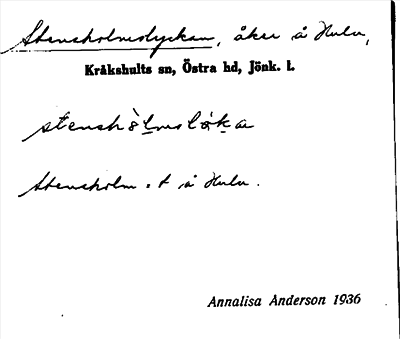 Stensholmslyckan, åker å Hulu,
Kråkshults sn, Östra hd, Jönk. l.
stenshòlmslökan
Stensholm : t å Hulu.
Annalisa Anderson 1936